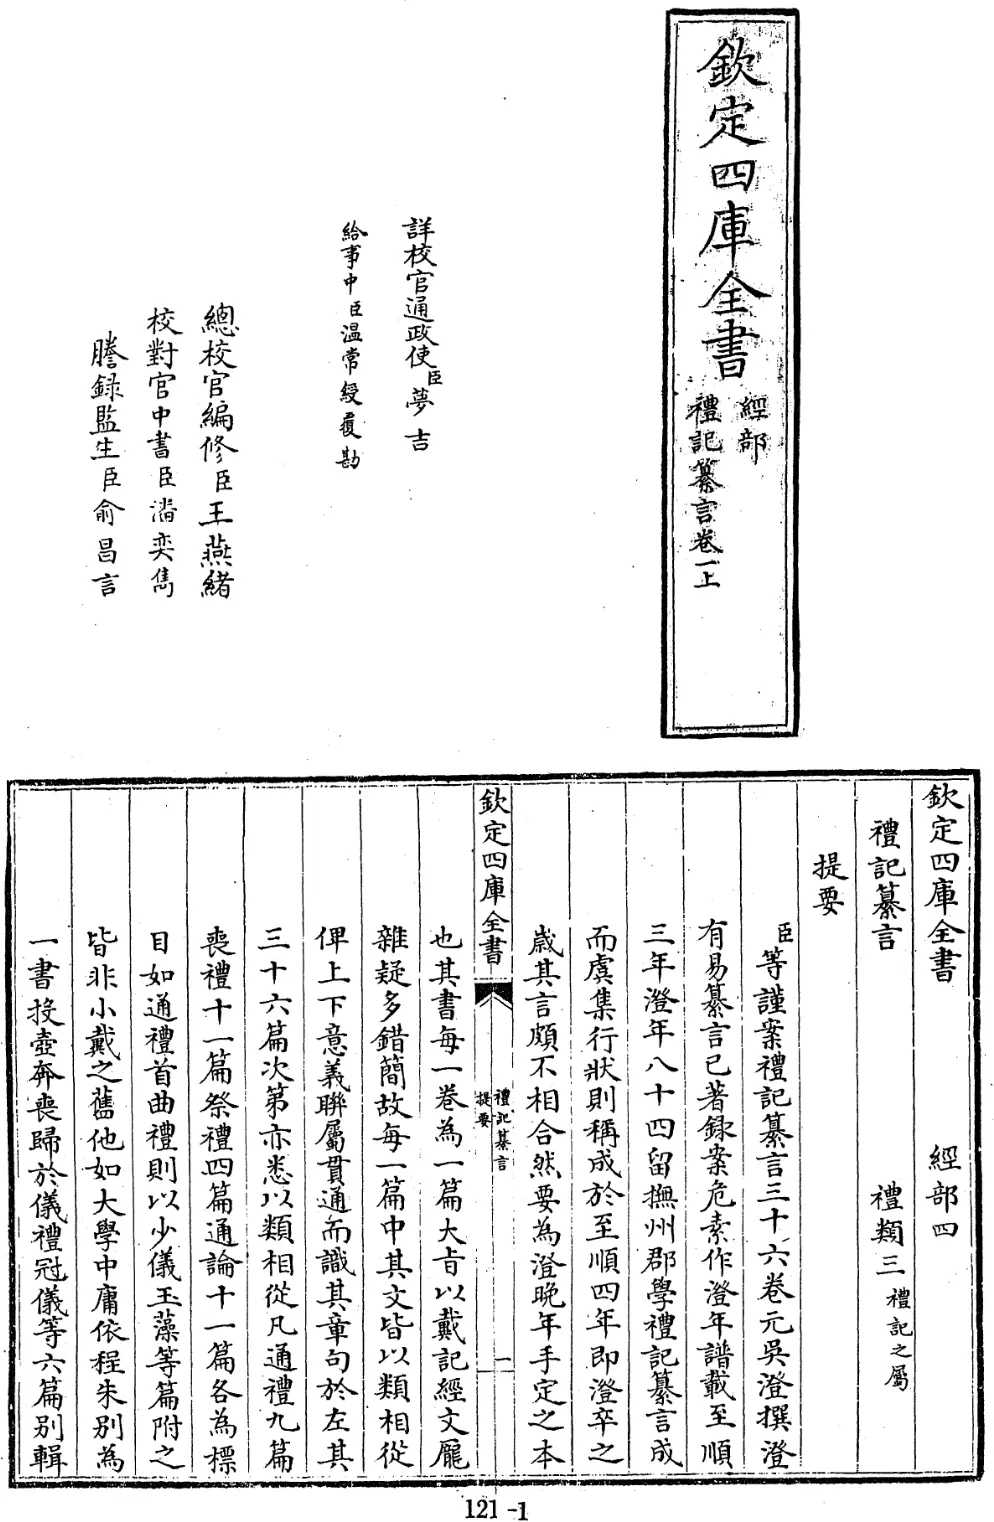 欽定四庫全書
經部
禮記纂言卷一上
詳校官通政使臣夢吉
給事中臣温常綬覆勘
總校官編修臣王燕緒
校對官中書臣潘奕雋
謄録監生臣俞昌言
欽定四庫全書 經部四
禮記纂言 禮類三禮記之屬
提要
臣等謹案禮記纂言三十六卷元吳澄撰澄
有易纂言已著録案危素作澄年譜載至順
三年澄年八十四留撫州郡學禮記纂言成
而虞集行狀則稱成於至順四年即澄卒之
歲其言頗不相合然要為澄晚年手定之本
欽定四庫全書
禮記纂言
提要
一
也其書每一卷為一篇大旨以戴記經文龎
雜疑多錯簡故每一篇中其文皆以類相從
俾上下意義聯屬貫通而識其章句於左其
三十六篇次第亦悉以類相從凡通禮九篇
喪禮十一篇祭禮四篇通論十一篇各為標
目如通禮首曲禮則以少儀玉藻等篇附之
皆非小戴之舊他如大學中庸依程朱别為
一書投壺奔喪歸於儀禮冠儀等六篇别輯
121-1